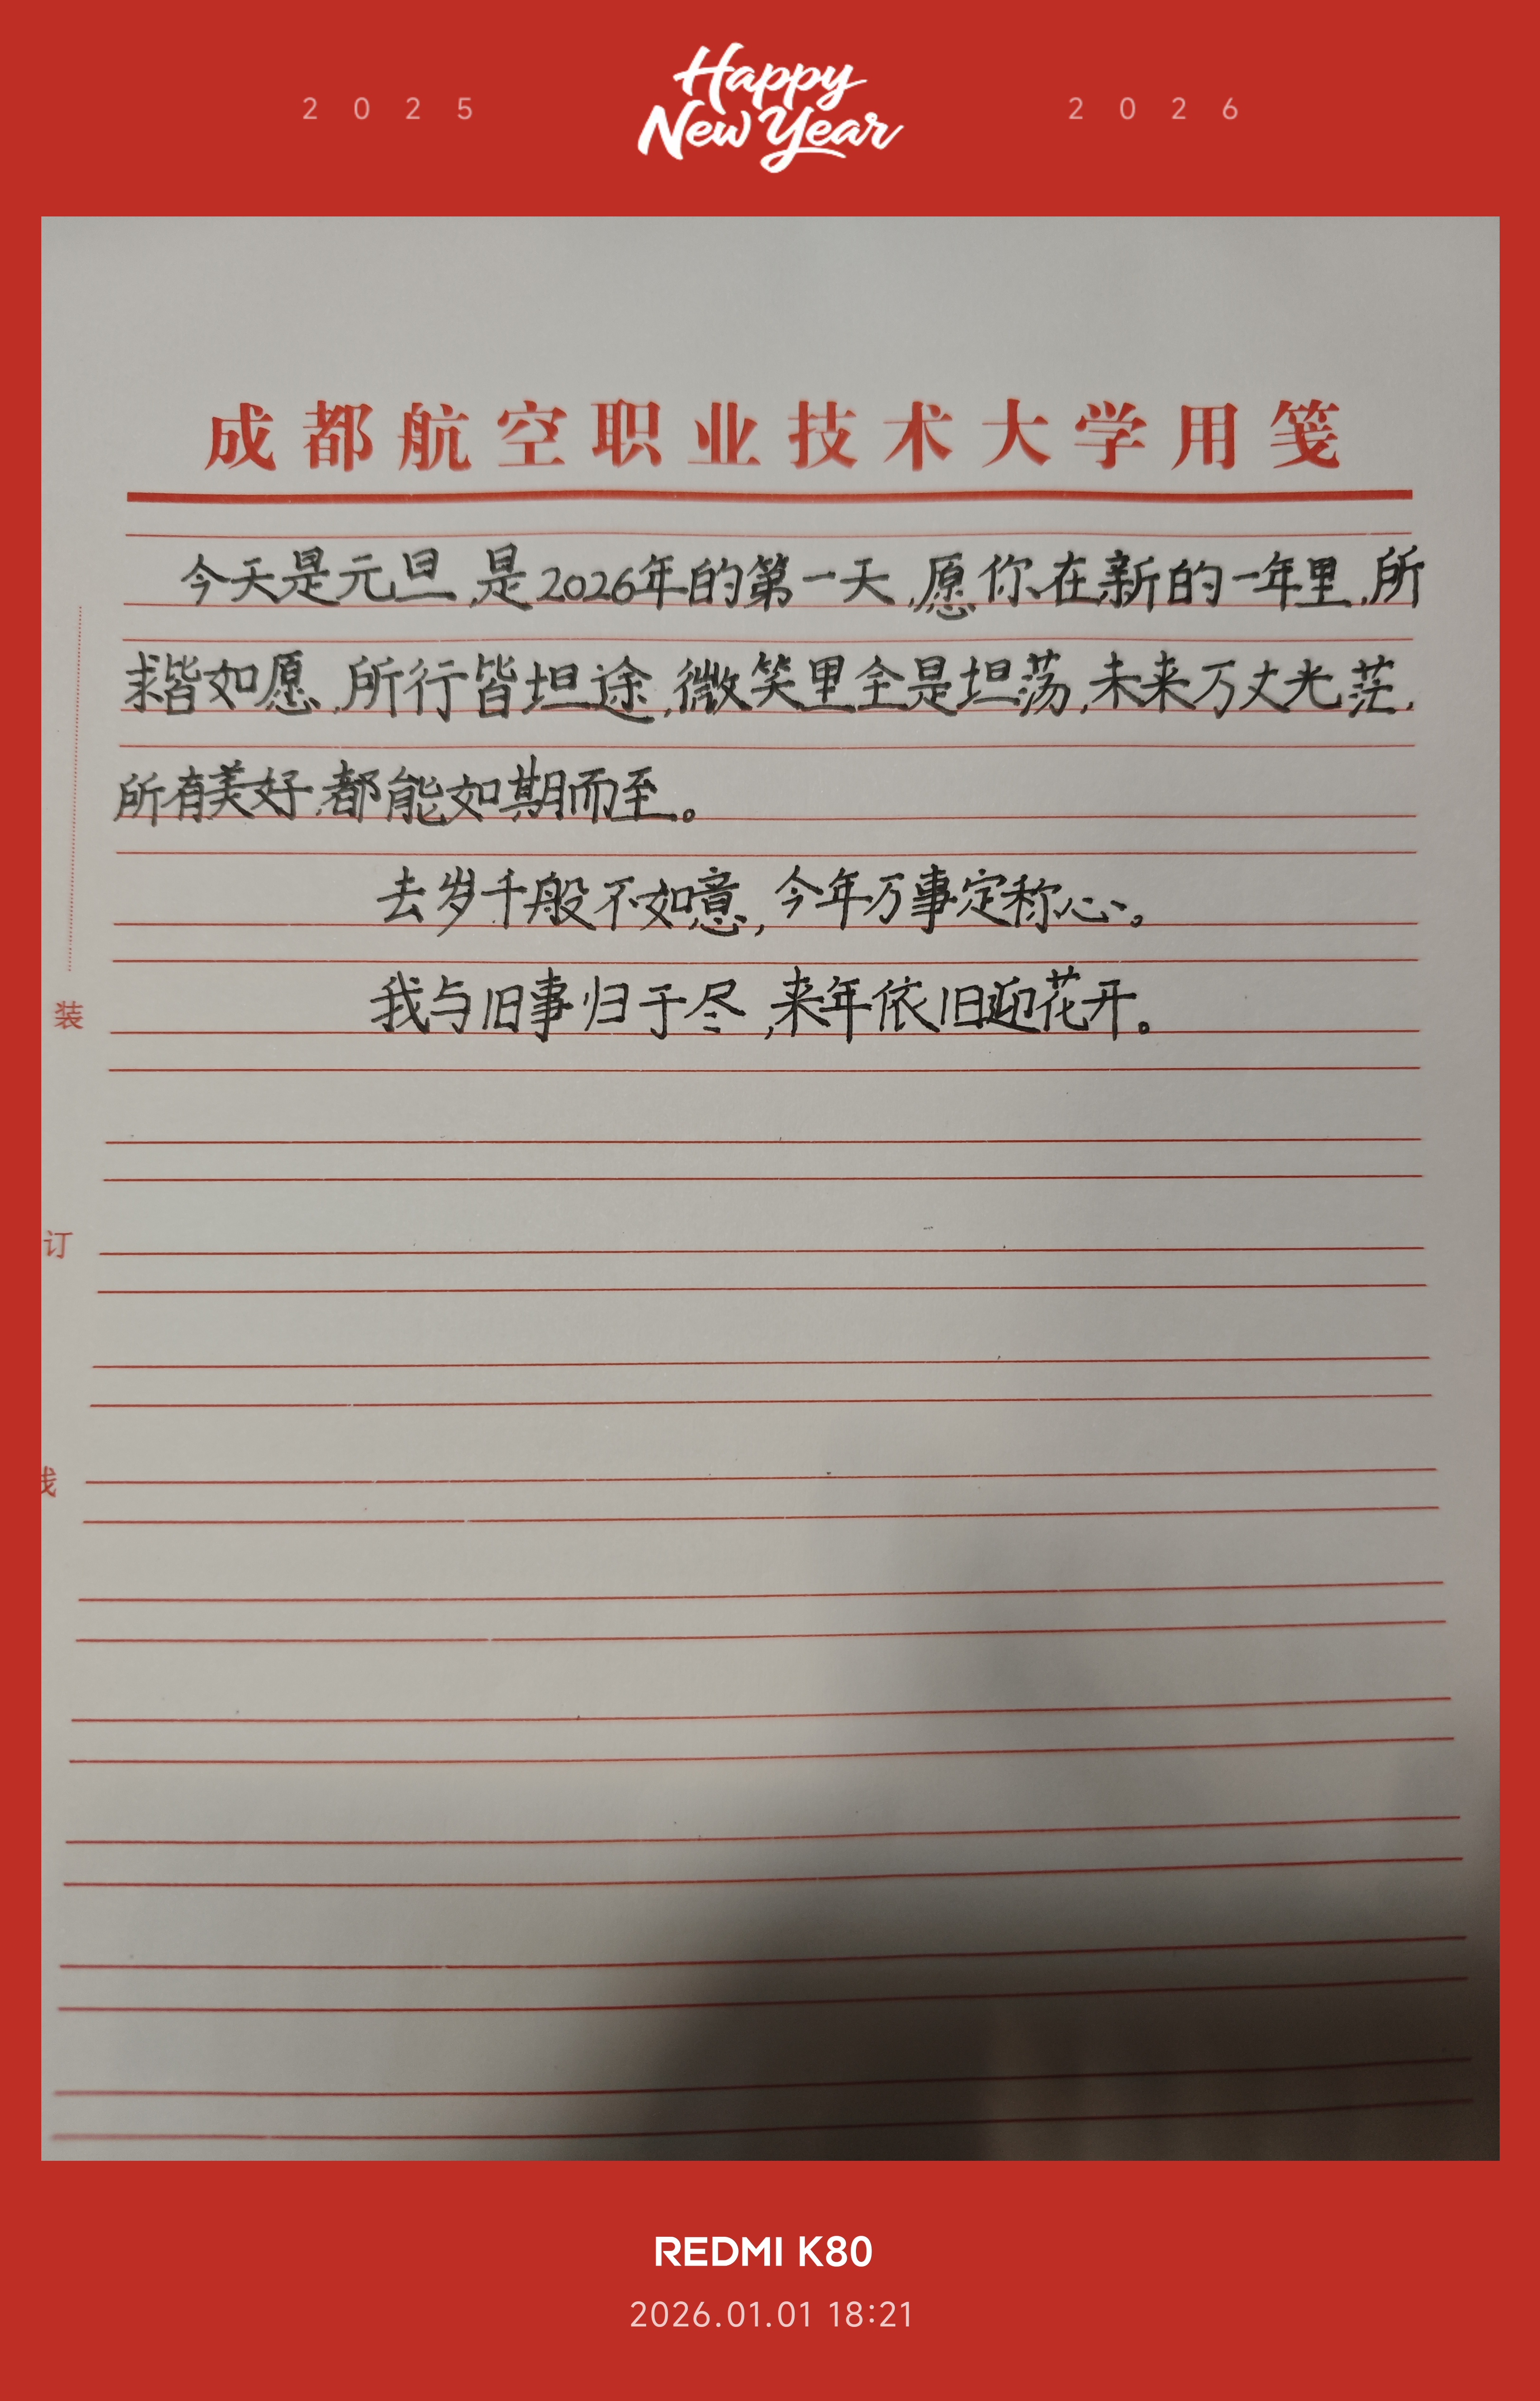 Happy
2025 New Year 2026
成都航空职业技术大学用笺
今天是元旦,是2026年的第一天,愿你在新的一年里,所
求皆如愿,所行皆坦途,微笑里全是坦荡,未来万丈光茫,
所有美好,都能如期而至。
去岁千般不如意,今年万事定称心。
我与旧事归于尽,来年依旧迎花开。
装
订
REDMI K80
2026.01.01 18:21